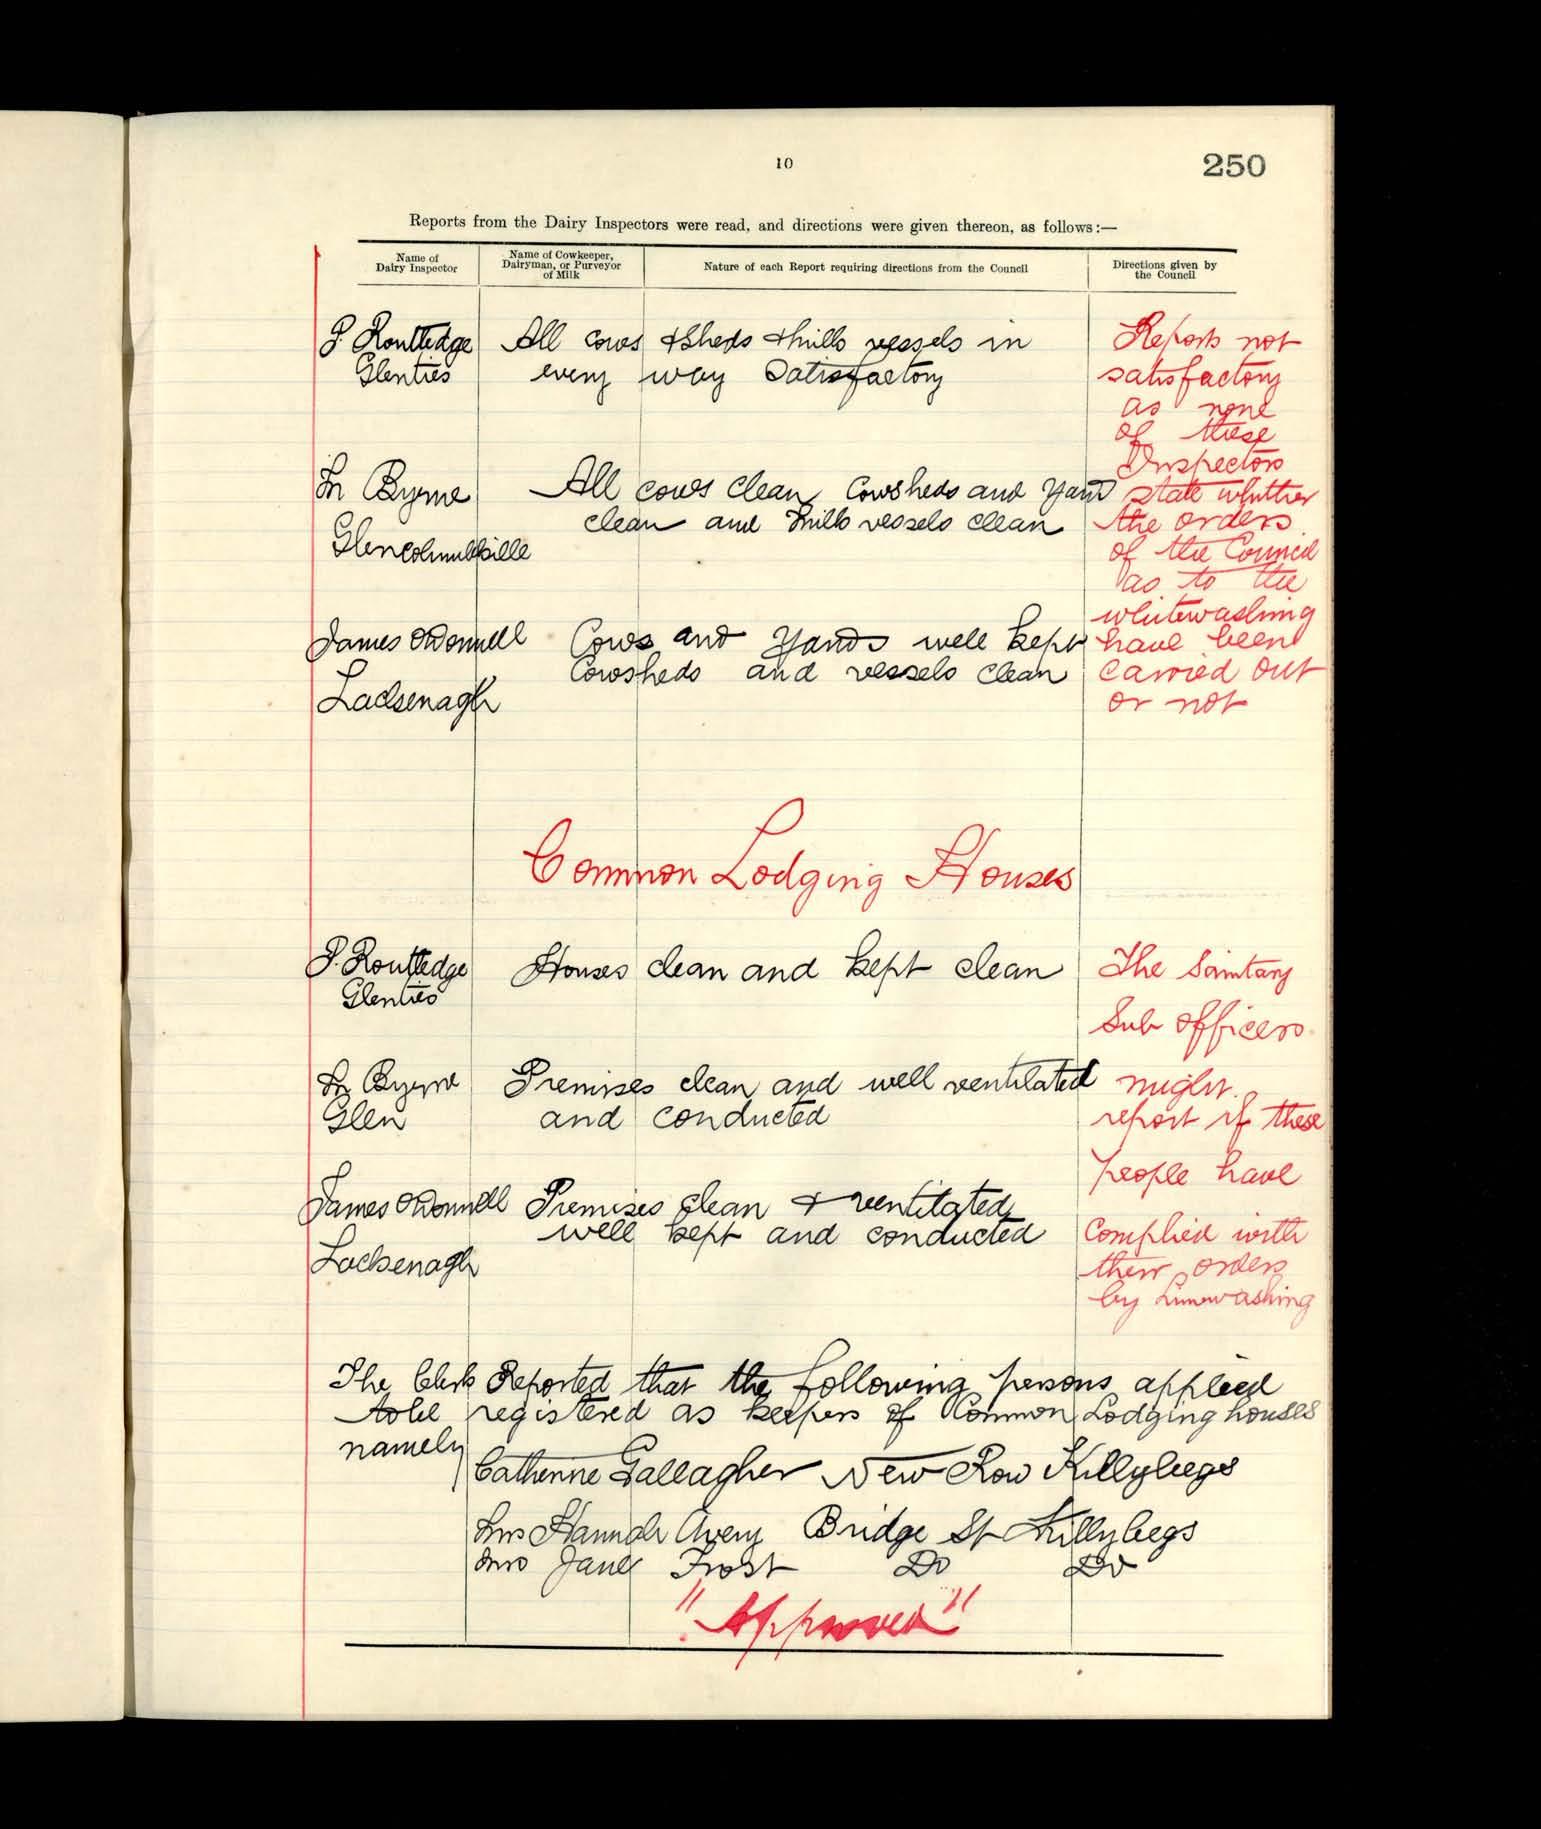 10
250
Reports from the Dairy Inspectors were read, and directions were given thereon, as follows:—
Name of Dairy Inspector
Name of Cowkeeper, Dairyman, or Purveyor of Milk
Nature of each Report requiring directions from the Council
Directions given by the Council
P Routledge
Glenties
All cows & Sheds & milk vessels in
every way Satisfactory
M Byrne
Glencolumbkille
All cows clean Cowsheds and Yard
clean and milk vessels clean
James O'Donnell
Lacksenagh
Cows and Yards well kept
Cowsheds and vessels clean
Reports not
satisfactory
as none
of these
Inspectors
state whether
the orders
of the Council
as to the
whitewashing
have been
carried out
or not
Common Lodging Houses
P. Routledge
Glenties
Houses clean and kept clean
M Byrne
Glen
Premises clean and well ventilated
and conducted
James O'Donnell
Lacksenagh
Premises clean & ventilated
well kept and conducted
The Sanitary
Sub officers
might
report if these
people have
complied with
their orders
by Limewashing
The Clerk Reported that the following persons applied
to be registered as keepers of Common Lodging houses
namely
Catherine Gallagher New Row Killybegs
Mrs Hannah Avery Bridge St Killybegs
Mrs Jane Frost Do Do
"Approved"